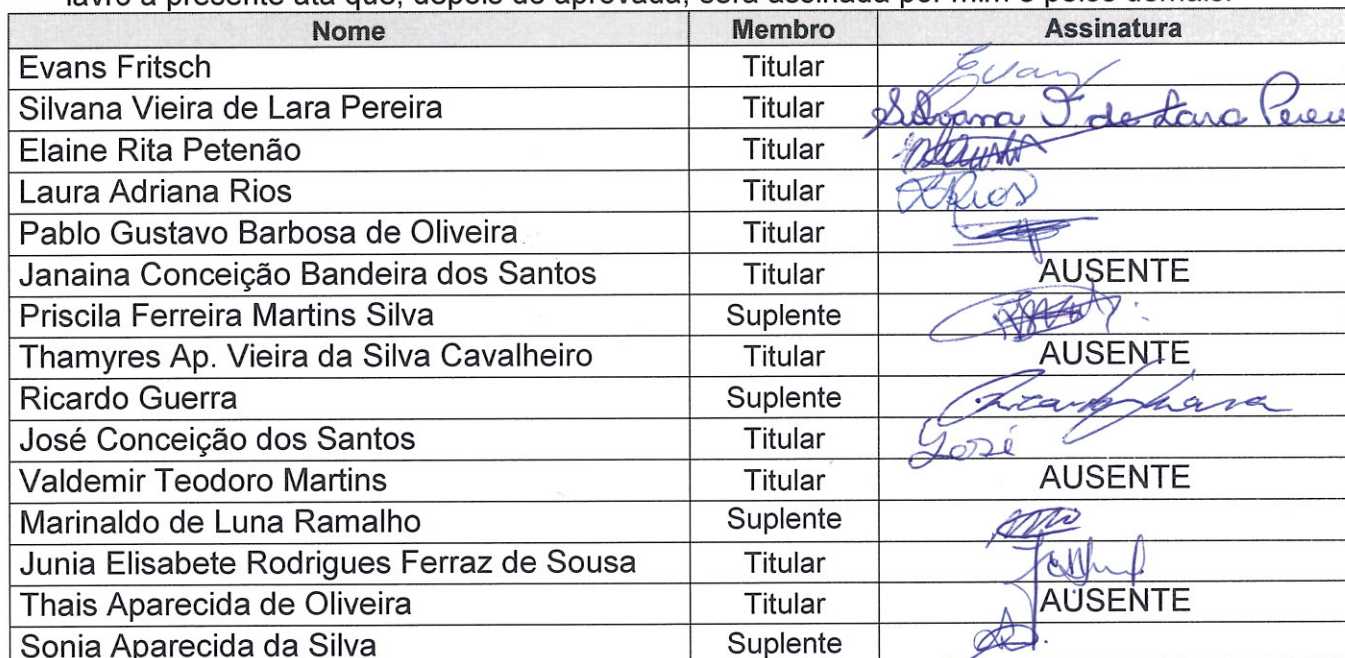 lavro a presente ata que, depois de aprovada, será assinada por mim e pelos demais.
Nome Membro Assinatura
Evans Fritsch Titular Evans
Silvana Vieira de Lara Pereira Titular Silvana V. de Lara Pereira
Elaine Rita Petenão Titular
Laura Adriana Rios Titular LRios
Pablo Gustavo Barbosa de Oliveira Titular
Janaina Conceição Bandeira dos Santos Titular AUSENTE
Priscila Ferreira Martins Silva Suplente
Thamyres Ap. Vieira da Silva Cavalheiro Titular AUSENTE
Ricardo Guerra Suplente
José Conceição dos Santos Titular José
Valdemir Teodoro Martins Titular AUSENTE
Marinaldo de Luna Ramalho Suplente
Junia Elisabete Rodrigues Ferraz de Sousa Titular
Thais Aparecida de Oliveira Titular AUSENTE
Sonia Aparecida da Silva Suplente